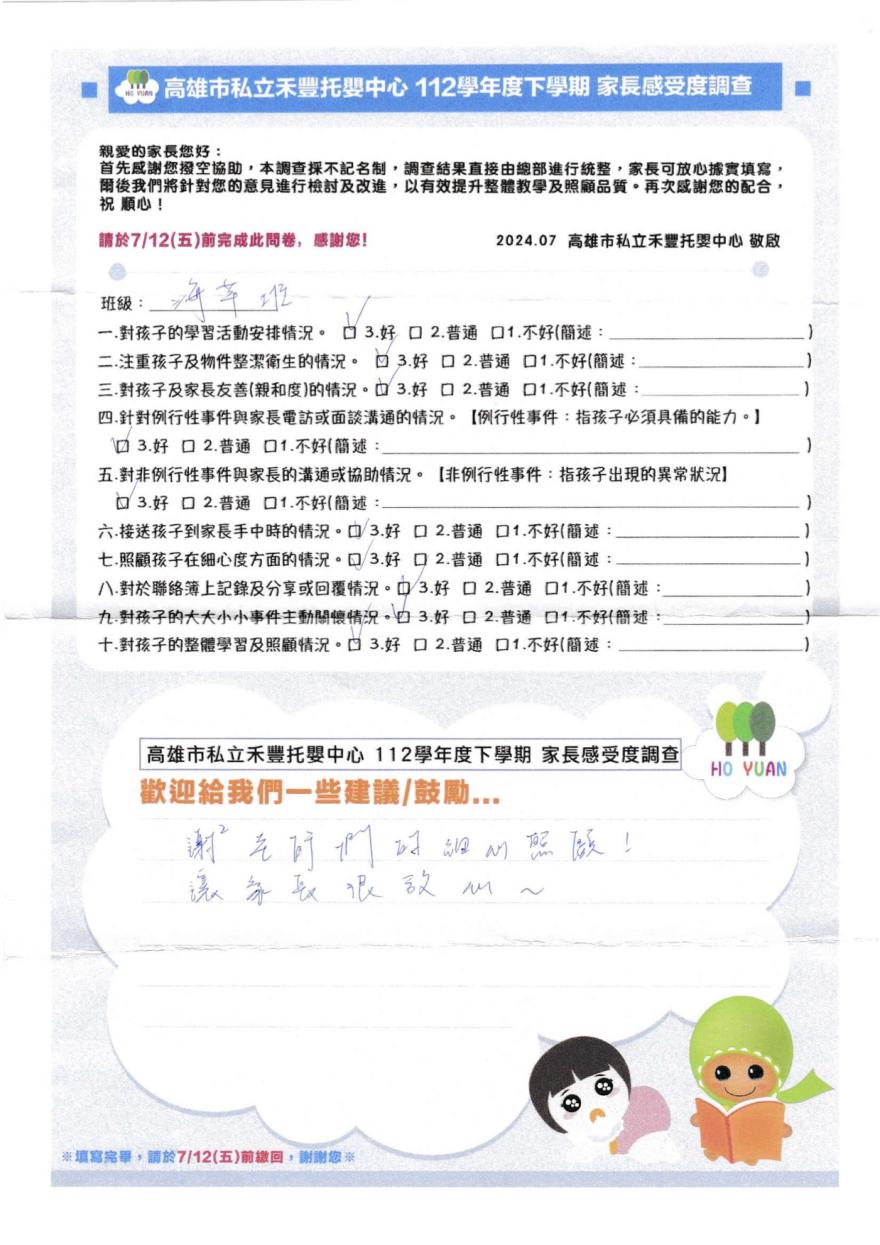 HO YUAN
高雄市私立禾豐托嬰中心 112學年度下學期 家長感受度調查
親愛的家長您好：
首先感謝您撥空協助，本調查採不記名制，調查結果直接由總部進行統整，家長可放心據實填寫，
爾後我們將針對您的意見進行檢討及改進，以有效提升整體教學及照顧品質。再次感謝您的配合，
祝 順心！
請於7/12(五)前完成此問卷，感謝您！
2024.07 高雄市私立禾豐托嬰中心 敬啟
班級：海芋班
一.對孩子的學習活動安排情況。 ☑ 3.好 □ 2.普通 □1.不好(簡述：                )
二.注重孩子及物件整潔衛生的情況。 ☑ 3.好 □ 2.普通 □1.不好(簡述：                )
三.對孩子及家長友善(親和度)的情況。☑ 3.好 □ 2.普通 □1.不好(簡述：                )
四.針對例行性事件與家長電訪或面談溝通的情況。【例行性事件：指孩子必須具備的能力。】
☑ 3.好 □ 2.普通 □1.不好(簡述：                )
五.對非例行性事件與家長的溝通或協助情況。【非例行性事件：指孩子出現的異常狀況】
☑ 3.好 □ 2.普通 □1.不好(簡述：                )
六.接送孩子到家長手中時的情況。☑ 3.好 □ 2.普通 □1.不好(簡述：                )
七.照顧孩子在細心度方面的情況。☑ 3.好 □ 2.普通 □1.不好(簡述：                )
八.對於聯絡簿上記錄及分享或回覆情況。☑ 3.好 □ 2.普通 □1.不好(簡述：                )
九.對孩子的大大小小事件主動關懷情況。☑ 3.好 □ 2.普通 □1.不好(簡述：                )
十.對孩子的整體學習及照顧情況。☑ 3.好 □ 2.普通 □1.不好(簡述：                )
高雄市私立禾豐托嬰中心 112學年度下學期 家長感受度調查
HO YUAN
歡迎給我們一些建議/鼓勵...
謝² 老師們的細心照顧！
讓家長很放心～
※填寫完畢，請於7/12(五)前繳回，謝謝您※